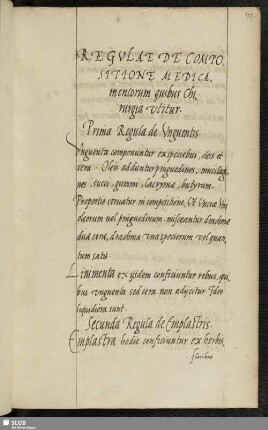 REGVLAE DE COMPO
SITIONE MEDICA
mentorum quibus Chi
rurgia vtitur.
Prima Regula de Vnguentis
Vnguenta componuntur ex speciebus, oleis et
cera. Oleis adduntur pinguedines, mucilagi,
nes, succi, gummi, lacrymæ, butyrum.
Proportio seruatur in compositione, Vt Vncia Vni
oleorum uel pinguedinum misceantur drachmæ
duæ ceræ, drachma vna specierum vel quan,
tum satis.
Linimenta ex ijsdem conficiuntur rebus, qui,
bus vnguenta sed cera non adijcitur Ideo
liquidiora sunt.
Secunda Regula de Emplastris.
Emplastra hodie conficiuntur ex herbis,
floribus
SLUB